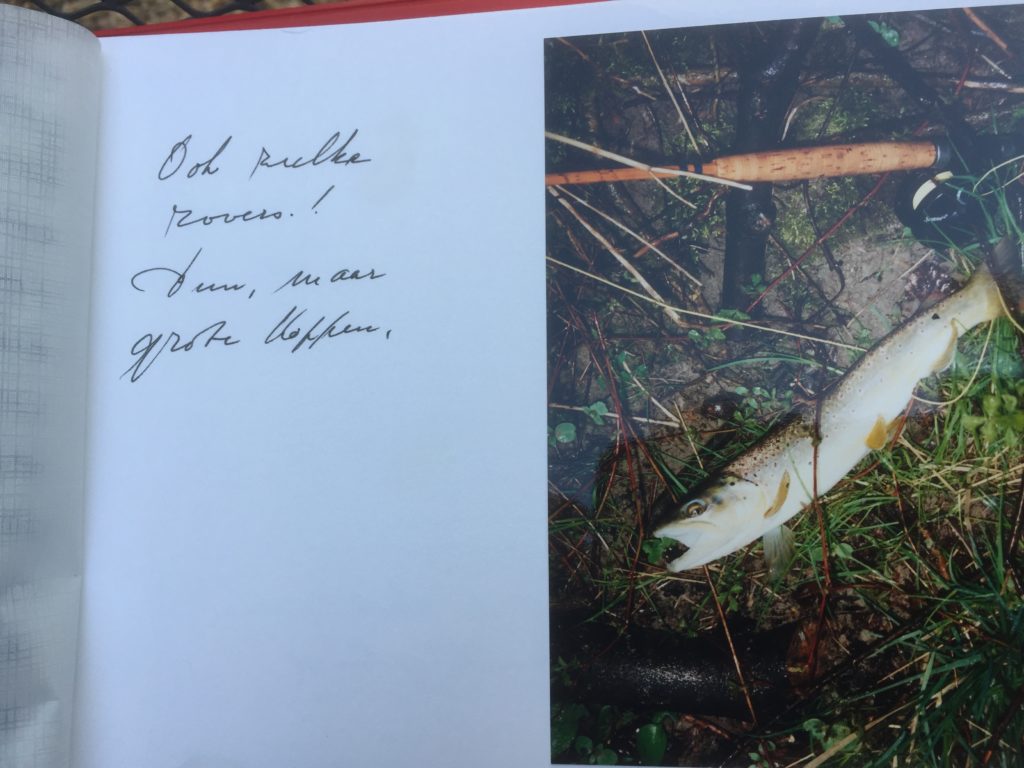 Ook zulke
rovers.!
Dun, maar
grote koppen.